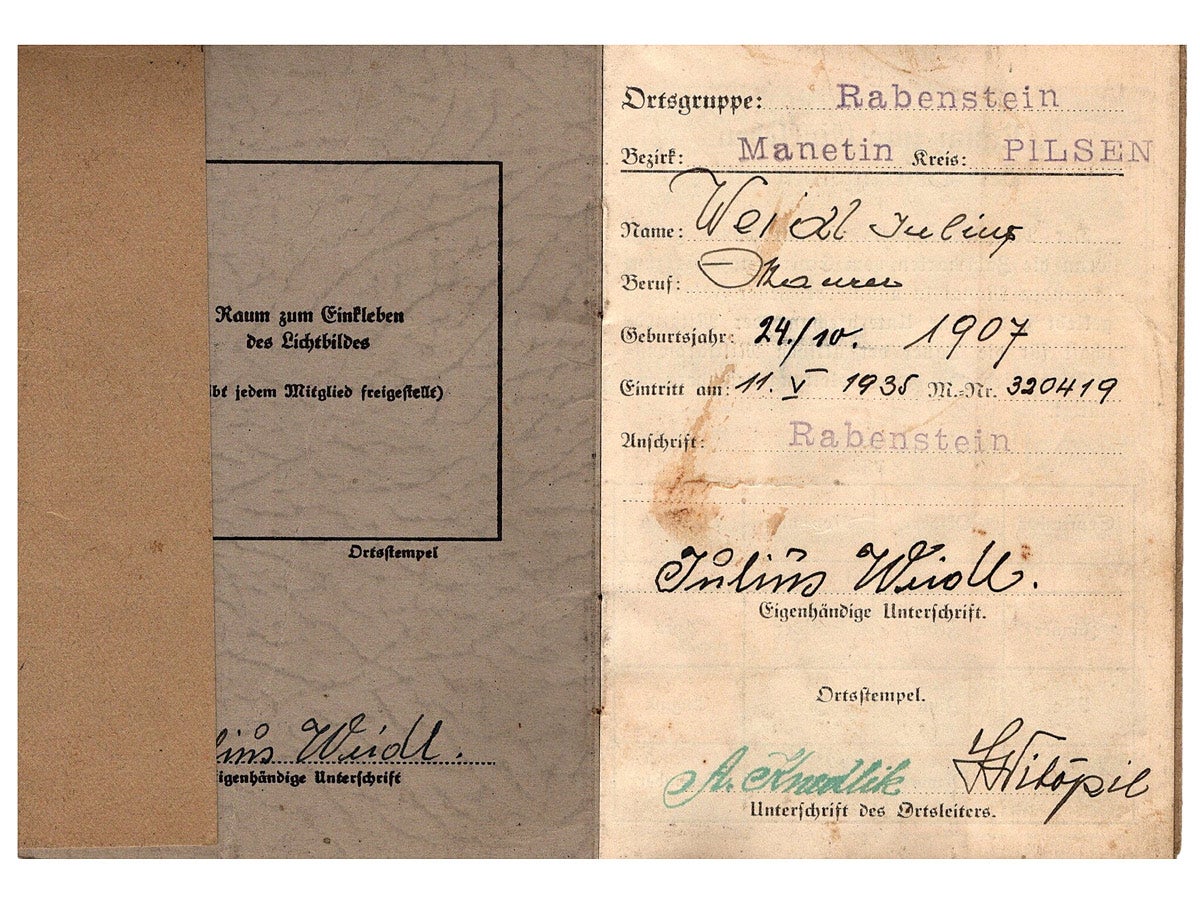 Raum zum Einkleben
des Lichtbildes
bt jedem Mitglied freigestellt)
Ortsstempel
lius Weidl.
igenhändige Unterschrift
Ortsgruppe: Rabenstein
Bezirk: Manetin Kreis: PILSEN
Name: Weidl Julius
Beruf: Maurer
Geburtsjahr: 24./10. 1907
Eintritt am: 11. V 1935 M.-Nr. 320419
Anschrift: Rabenstein
Julius Weidl.
Eigenhändige Unterschrift.
Ortsstempel.
A. Knedlik
Unterschrift des Ortsleiters.